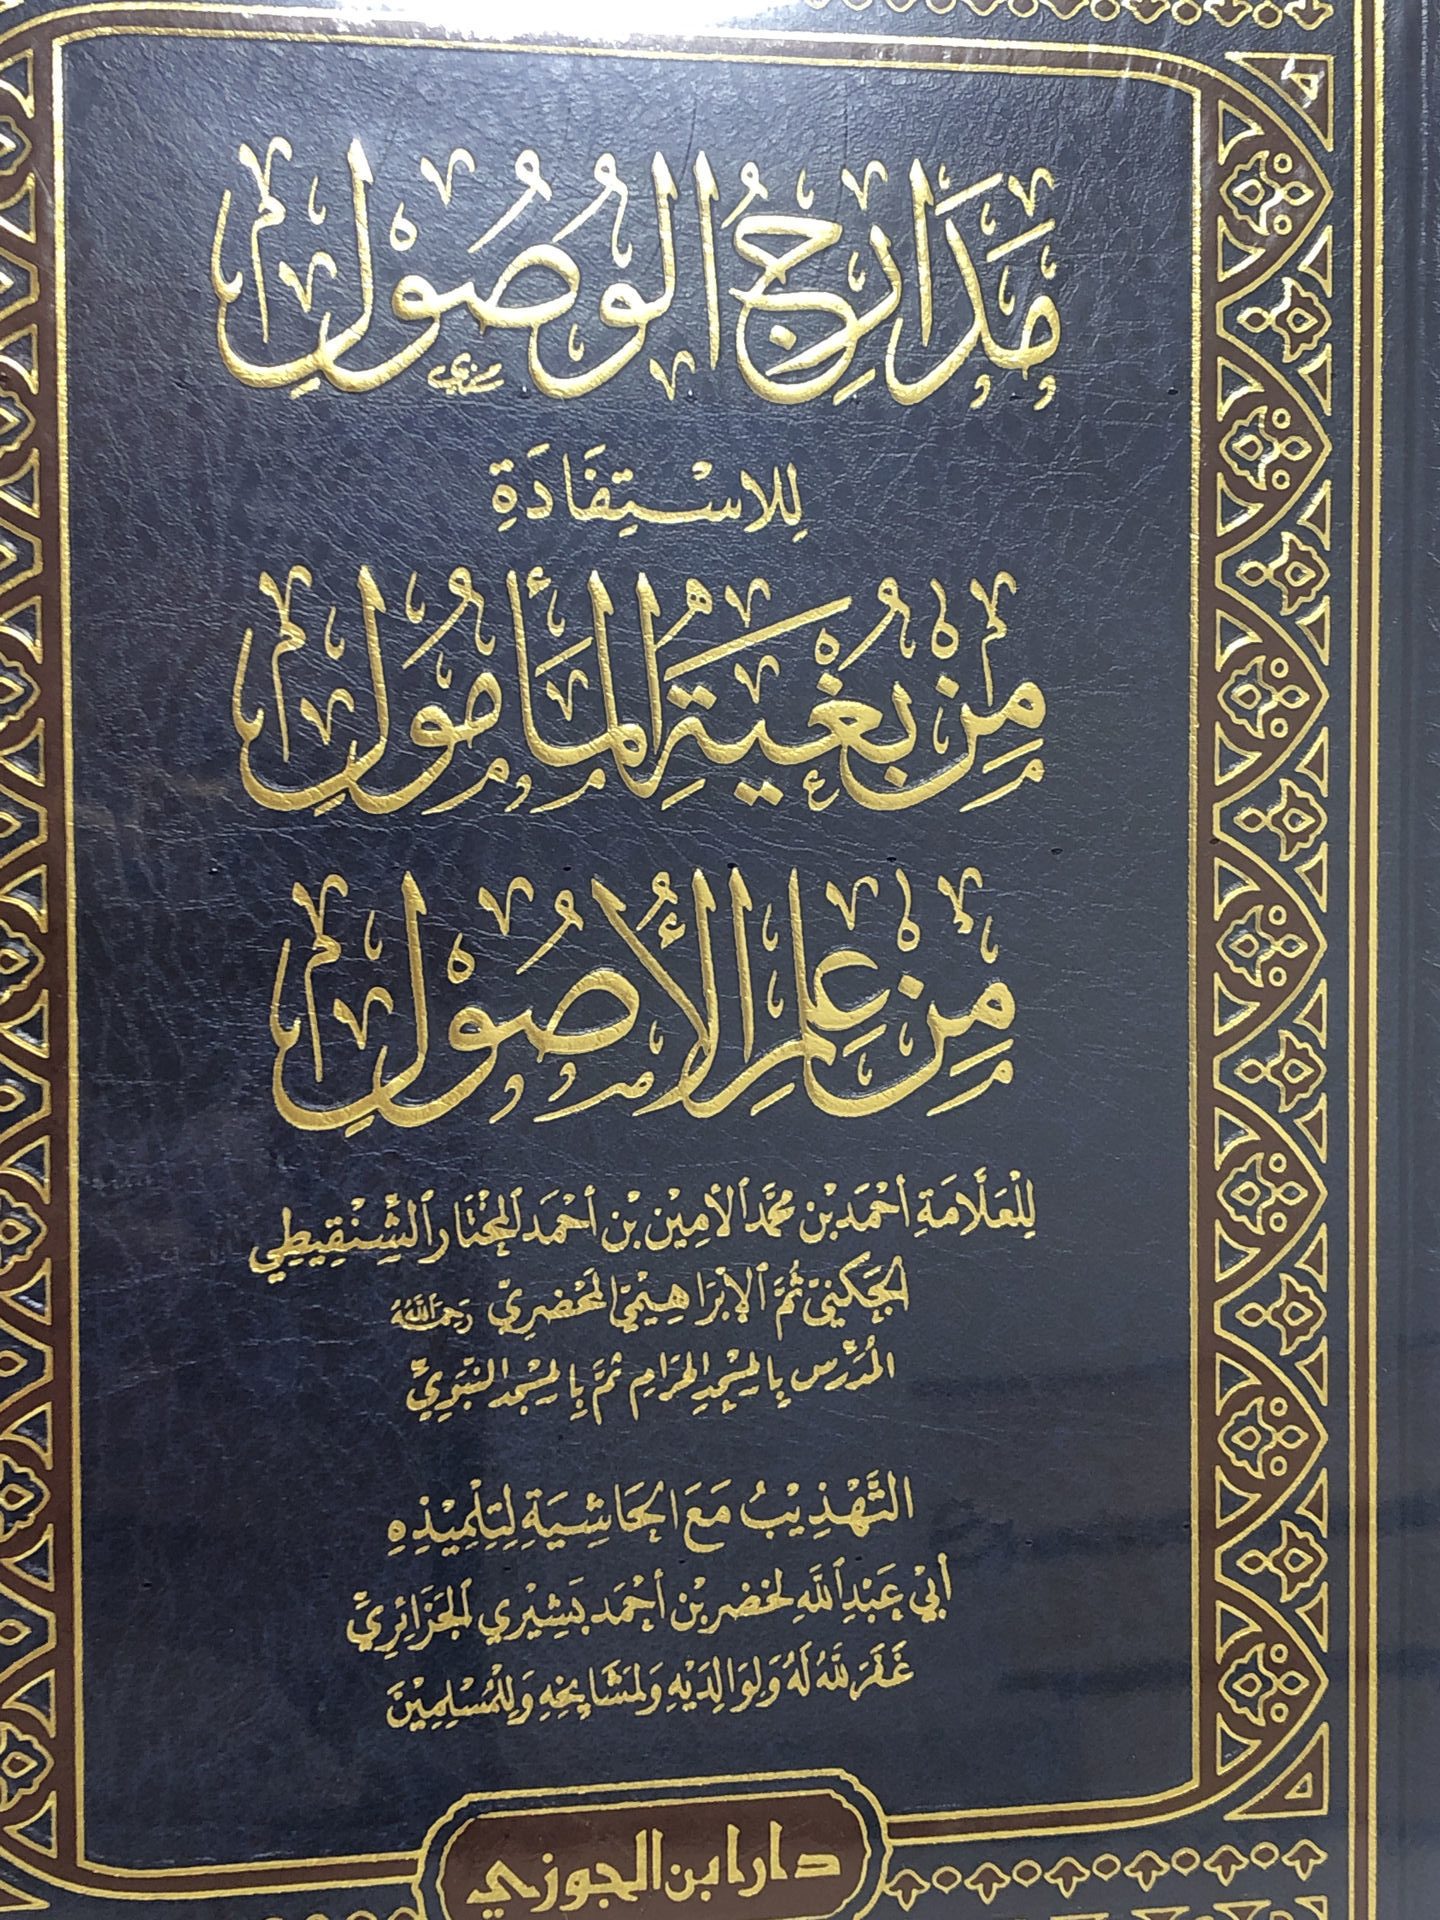 مَدَارِجُ الْوُصُوْلِ
لِلاسْتِفَادَةِ
مِنْ بُغْيَةِ الْمَأْمُوْلِ
مِنْ عِلْمِ الْأُصُوْلِ
لِلْعَلَّامَةِ أَحْمَدَ بْنِ مُحَمَّد الأَمِيْن بْنِ أَحْمَد المُخْتَار الشِّنْقِيْطِي
الجَكَنِيّ ثُمَّ الإِبْرَاهِيْمِيّ المَحْضَرِيّ رَحِمَهُ اللَّهُ
المُدَرِّسِ بِالمَسْجِدِ الحَرَامِ ثُمَّ بِالمَسْجِدِ النَّبَوِيِّ
التَّهْذِيْبُ مَعَ الحَاشِيَةِ لِتِلْمِيْذِهِ
أَبِيْ عَبْدِ اللَّهِ لَخْضَر بْن أَحْمَد بَشِيْرِي الجَزَائِرِيِّ
غَفَرَ اللَّهُ لَهُ وَلِوَالِدَيْهِ وَلِمَشَايِخِهِ وَلِلْمُسْلِمِيْنَ
دار ابن الجوزي